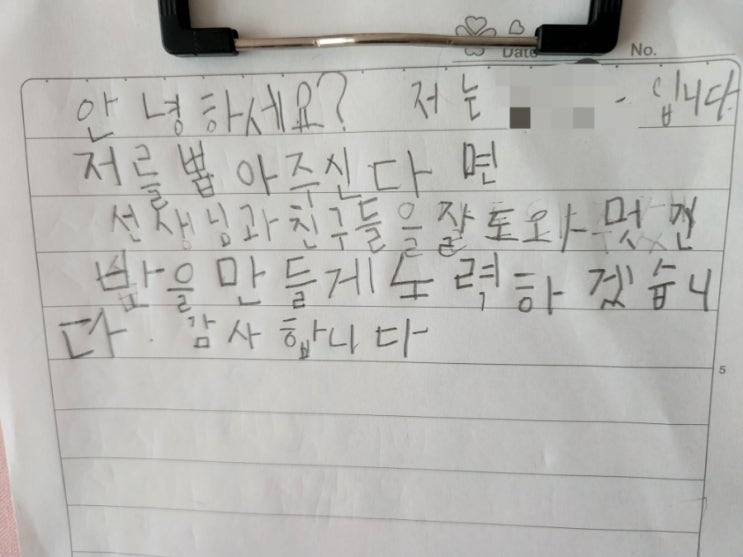 Date No.
안녕하세요? 저는 입니다
저를 뽑아주신다면
선생님과 친구들을 잘 토오아 멋진
반을 만들게 노력하겠습니
다. 감사합니다
5